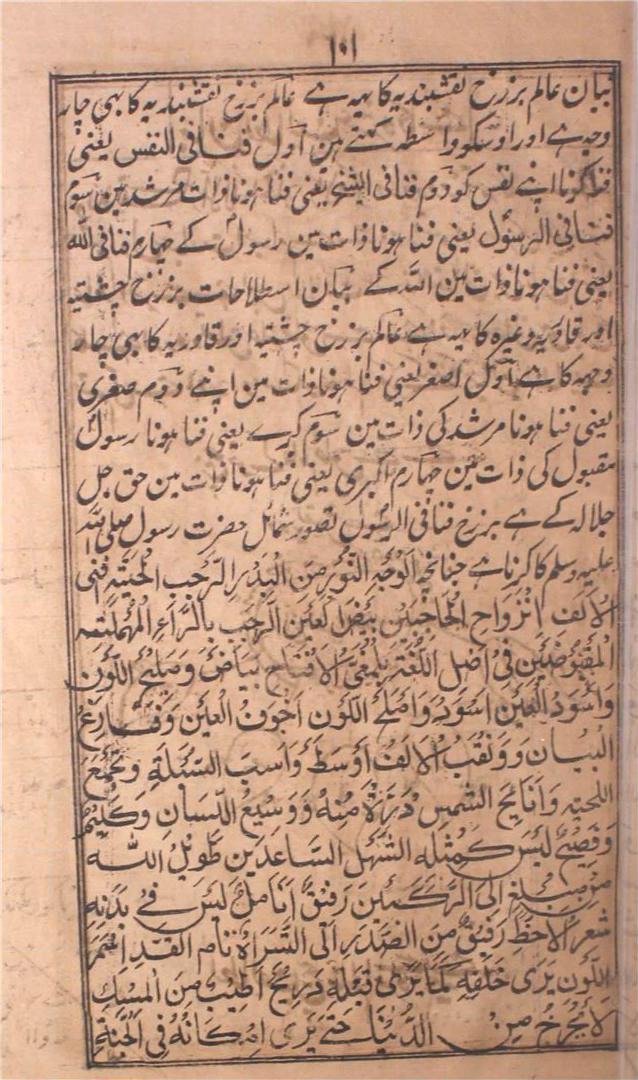 ۱۰۱
بیان عالم برزخ نقشبندیہ کا یہہ ہے عالم برزخ نقشبندیہ کا بہی چار
وجہ ہے اور اوسکو واسطہ کہتے ہین اول فنا فی النفس یعنی
فنا کرنا اپنے نفس کو دوم فنا فی الشیخ یعنی فنا ہونا ذات مرشد مین سوم
فنا فی الرسول یعنی فنا ہونا ذات مین رسول کے چہارم فنا فی اللہ
یعنی فنا ہونا ذات مین اللہ کے بیان اسطلاحات برزخ چشتیہ
اور قادریہ وغیرہ کا یہہ ہے عالم برزخ چشتیہ اور قادریہ کا بہی چار
وجہہ کا ہے اول اصغر یعنی فنا ہونا ذات مین اپنے دوم صغری
یعنی فنا ہونا مرشد کی ذات مین سوم کبرے یعنی فنا ہونا رسول
مقبول کی ذات مین چہارم اکبری یعنی فنا ہونا ذات مین حق جل
جلالہ کے ہے برزخ فنا فی الرسول تصور شمائل حضرت رسول صلی اللہ
علیہ وسلم کا کرنا ہے چنانچہ الوجہ النور من البدر الرجب اللحیتہ
الالف الحاجبین بیضا لعین الرجب بالراء المهملته
المقبوضتین فی اصل اللغتہ بیاض وملیح اللون
واسود العین اسود واملح اللون اجون العین
البیان ونقب الالف اوسط واسب السبلة وتجمع
اللحیتہ الشمس منہ ووسیع اللسان وکلیم
وفصیح لیس کمثلہ الشهل الساعدین طویل الله
الی الرکبتین رفیق انامل لیس فی بدنہ
شعر الاخط رفیق من الصدر الی السراة تام القد اسمر
اللون یری خلفہ کما یری قبلہ ریح اطیب من المسک
لا یخرج من الدنیا حتے یری امکانہ فی الجنة